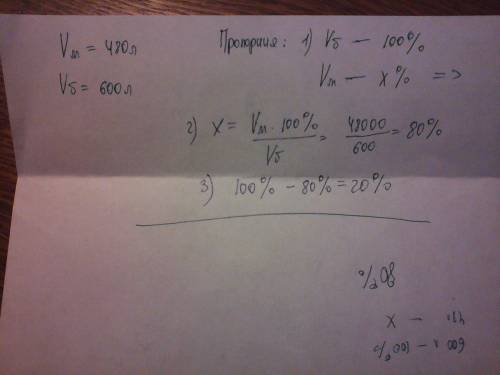 Vм = 480л
Vб = 600л
Пропорция: 1) Vб — 100%
Vм — x% =>
2) x = Vм · 100% / Vб = 48000 / 600 = 80%
3) 100% - 80% = 20%
80%
— x
600 л — 100%